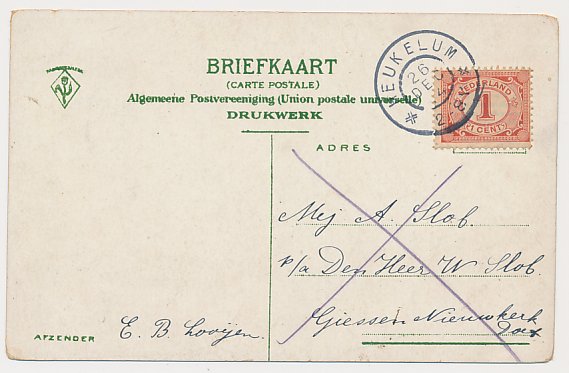 BRIEFKAART
(CARTE POSTALE)
Algemeene Postvereeniging (Union postale universelle)
DRUKWERK
HEUKELUM
26 DEC
NEDERLAND
1
CENT
ADRES
Mej A. Slob.
p/a Den Heer W Slob.
Giessen Nieuwkerk
AFZENDER
E. B. Looijen.